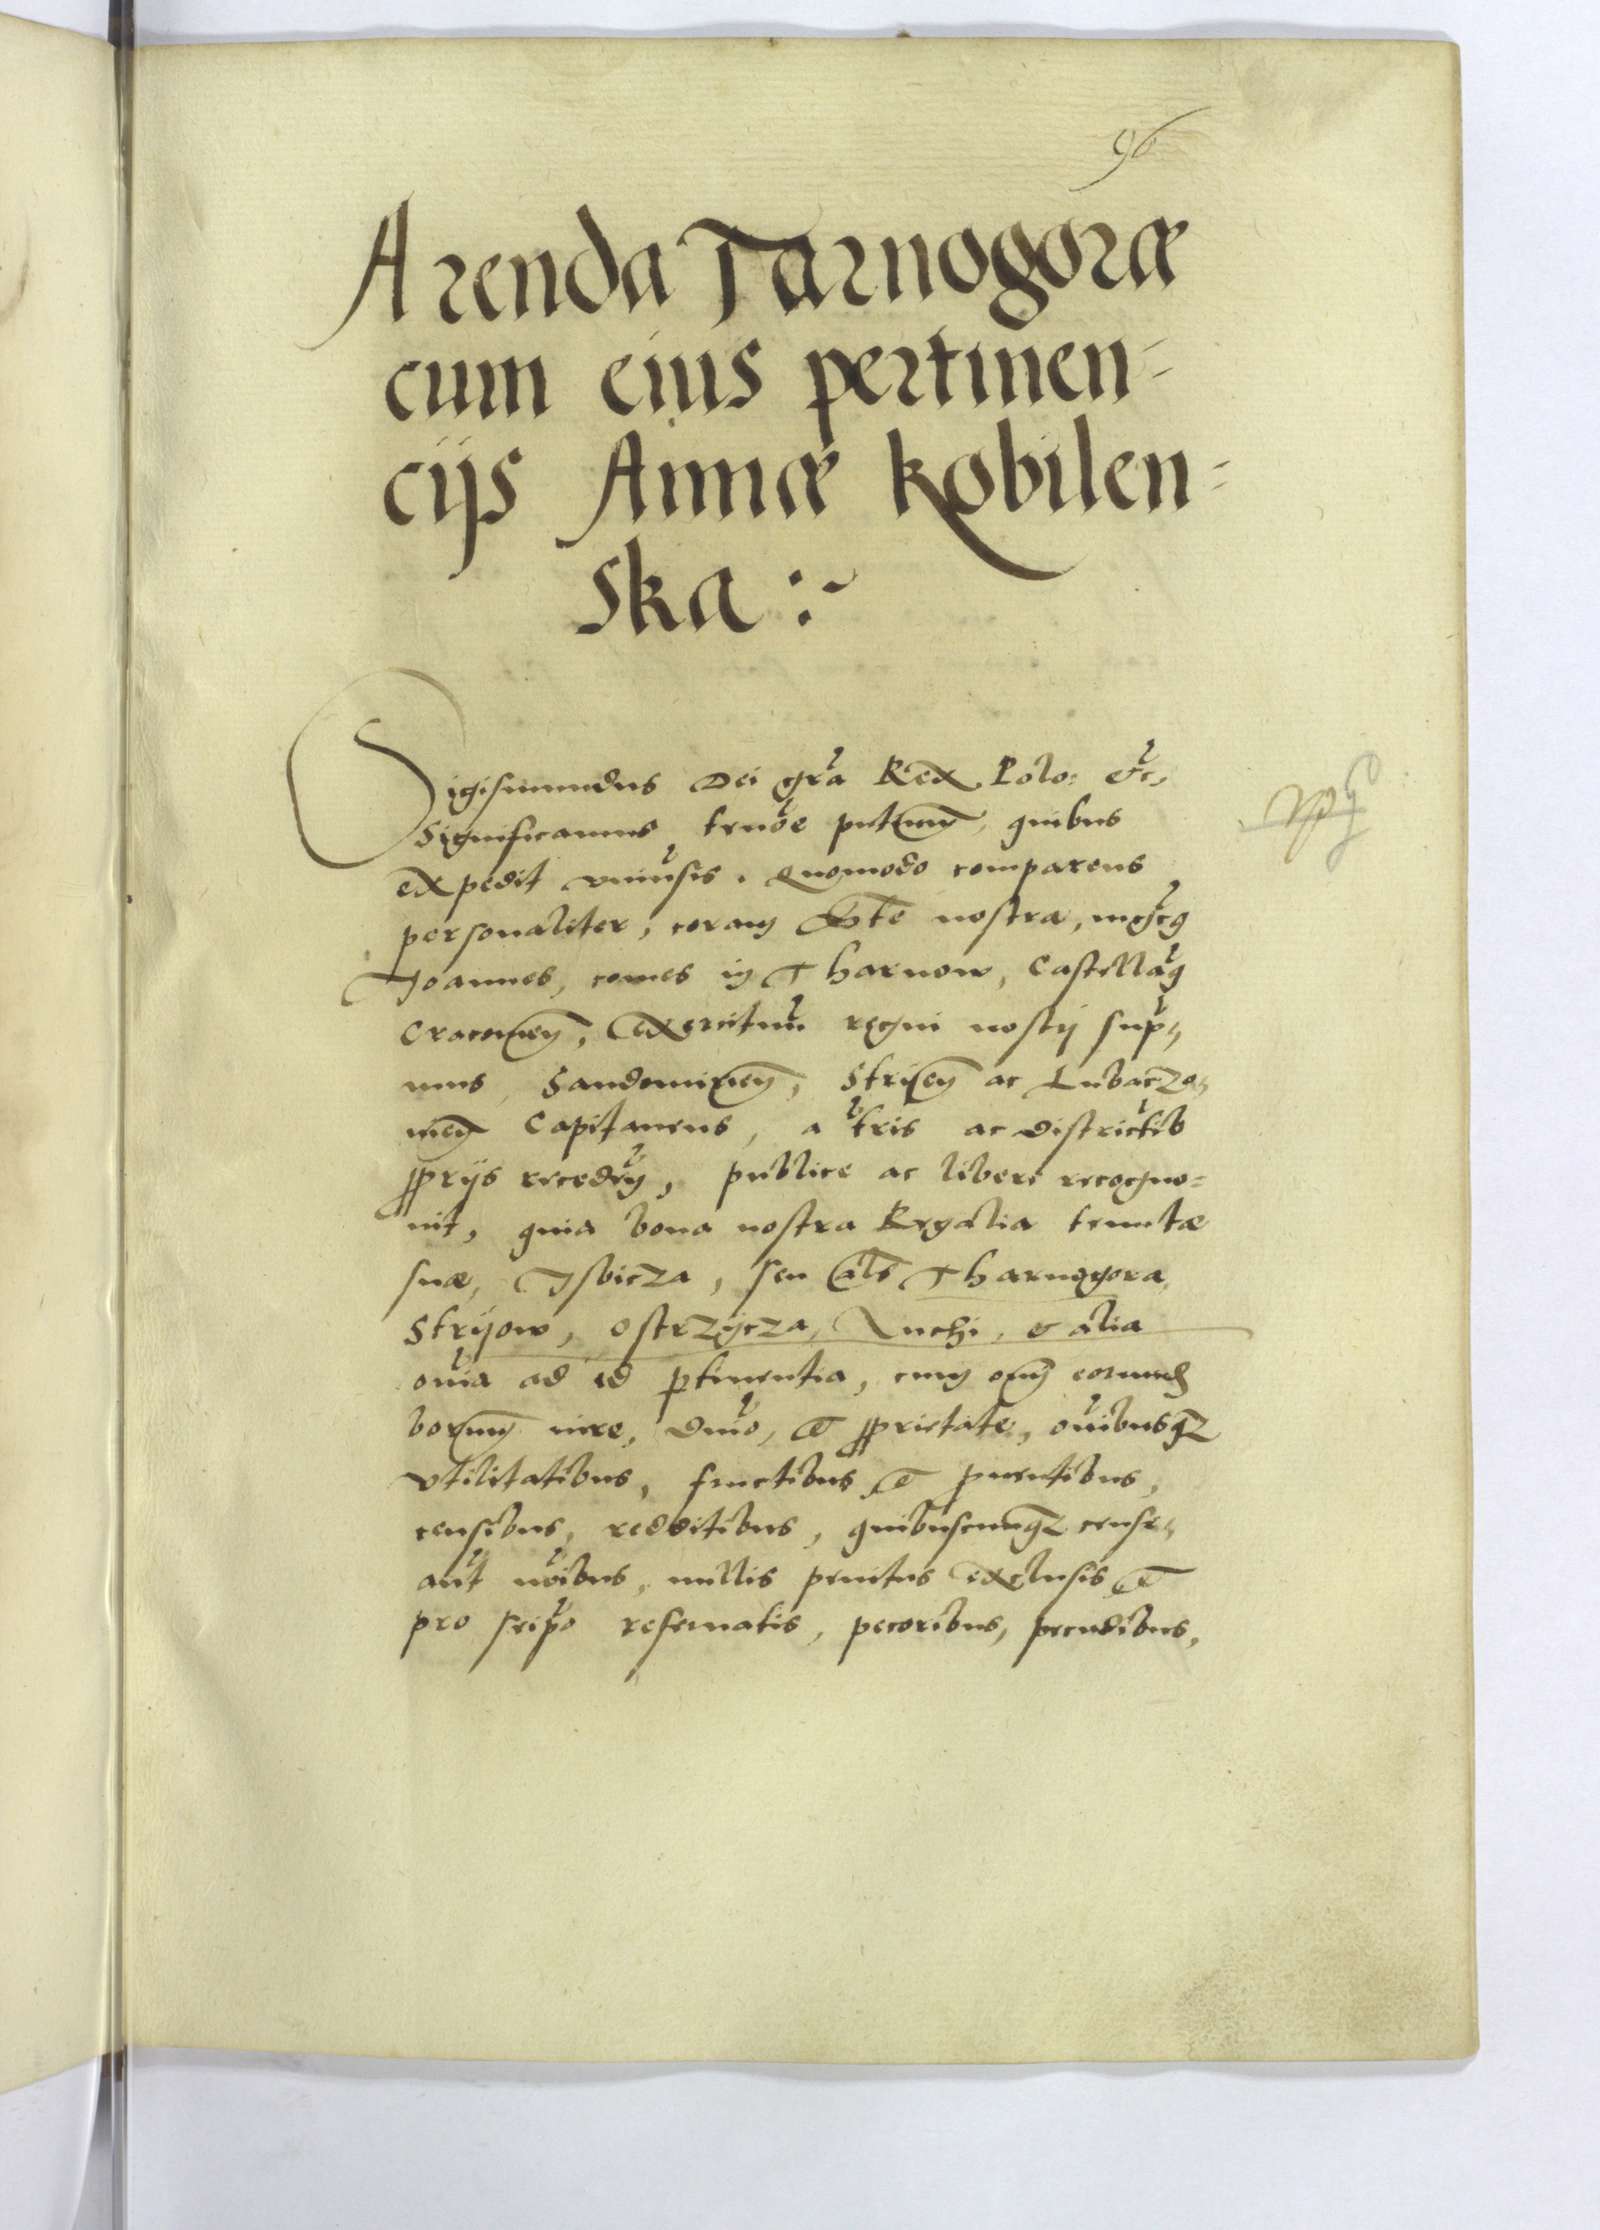 96
Arenda Tarnogoræ
cum eius pertinen=
cijs Annæ Kobilen=
ska :~
Sigismundus Dei gra Rex Polo: etc,
Significamus, tenore putium, quibus
expedit vniusis. Quomodo comparens
personaliter, coram Mte nostra, mgfcg
Joannes, comes in Tharnow, Castellag
Cracouien, Exercituu regni nostri sup,
mus, Sandomirien, Strien ac Lubaczo,
uien Capitaneus, a tris ac districtib
pprijs recedn, publice ac libere recogno=
uit, quia bona nostra Regalia tenutæ
suæ, Isbicza, seu als Tharnogora,
Stryow, Ostrzycza, Luchi, & alia
oia ad id ptinentia, cum oim eorund
bonorum iure, dnio, et pprietate, oibusqz
vtilitatibus, fructibus et puentibus,
censibus, redditibus, quibuscunqz cense,
ant noibus, nullis penitus exclusis et
pro seipo reseruatis, pecoribus, pecudibus,